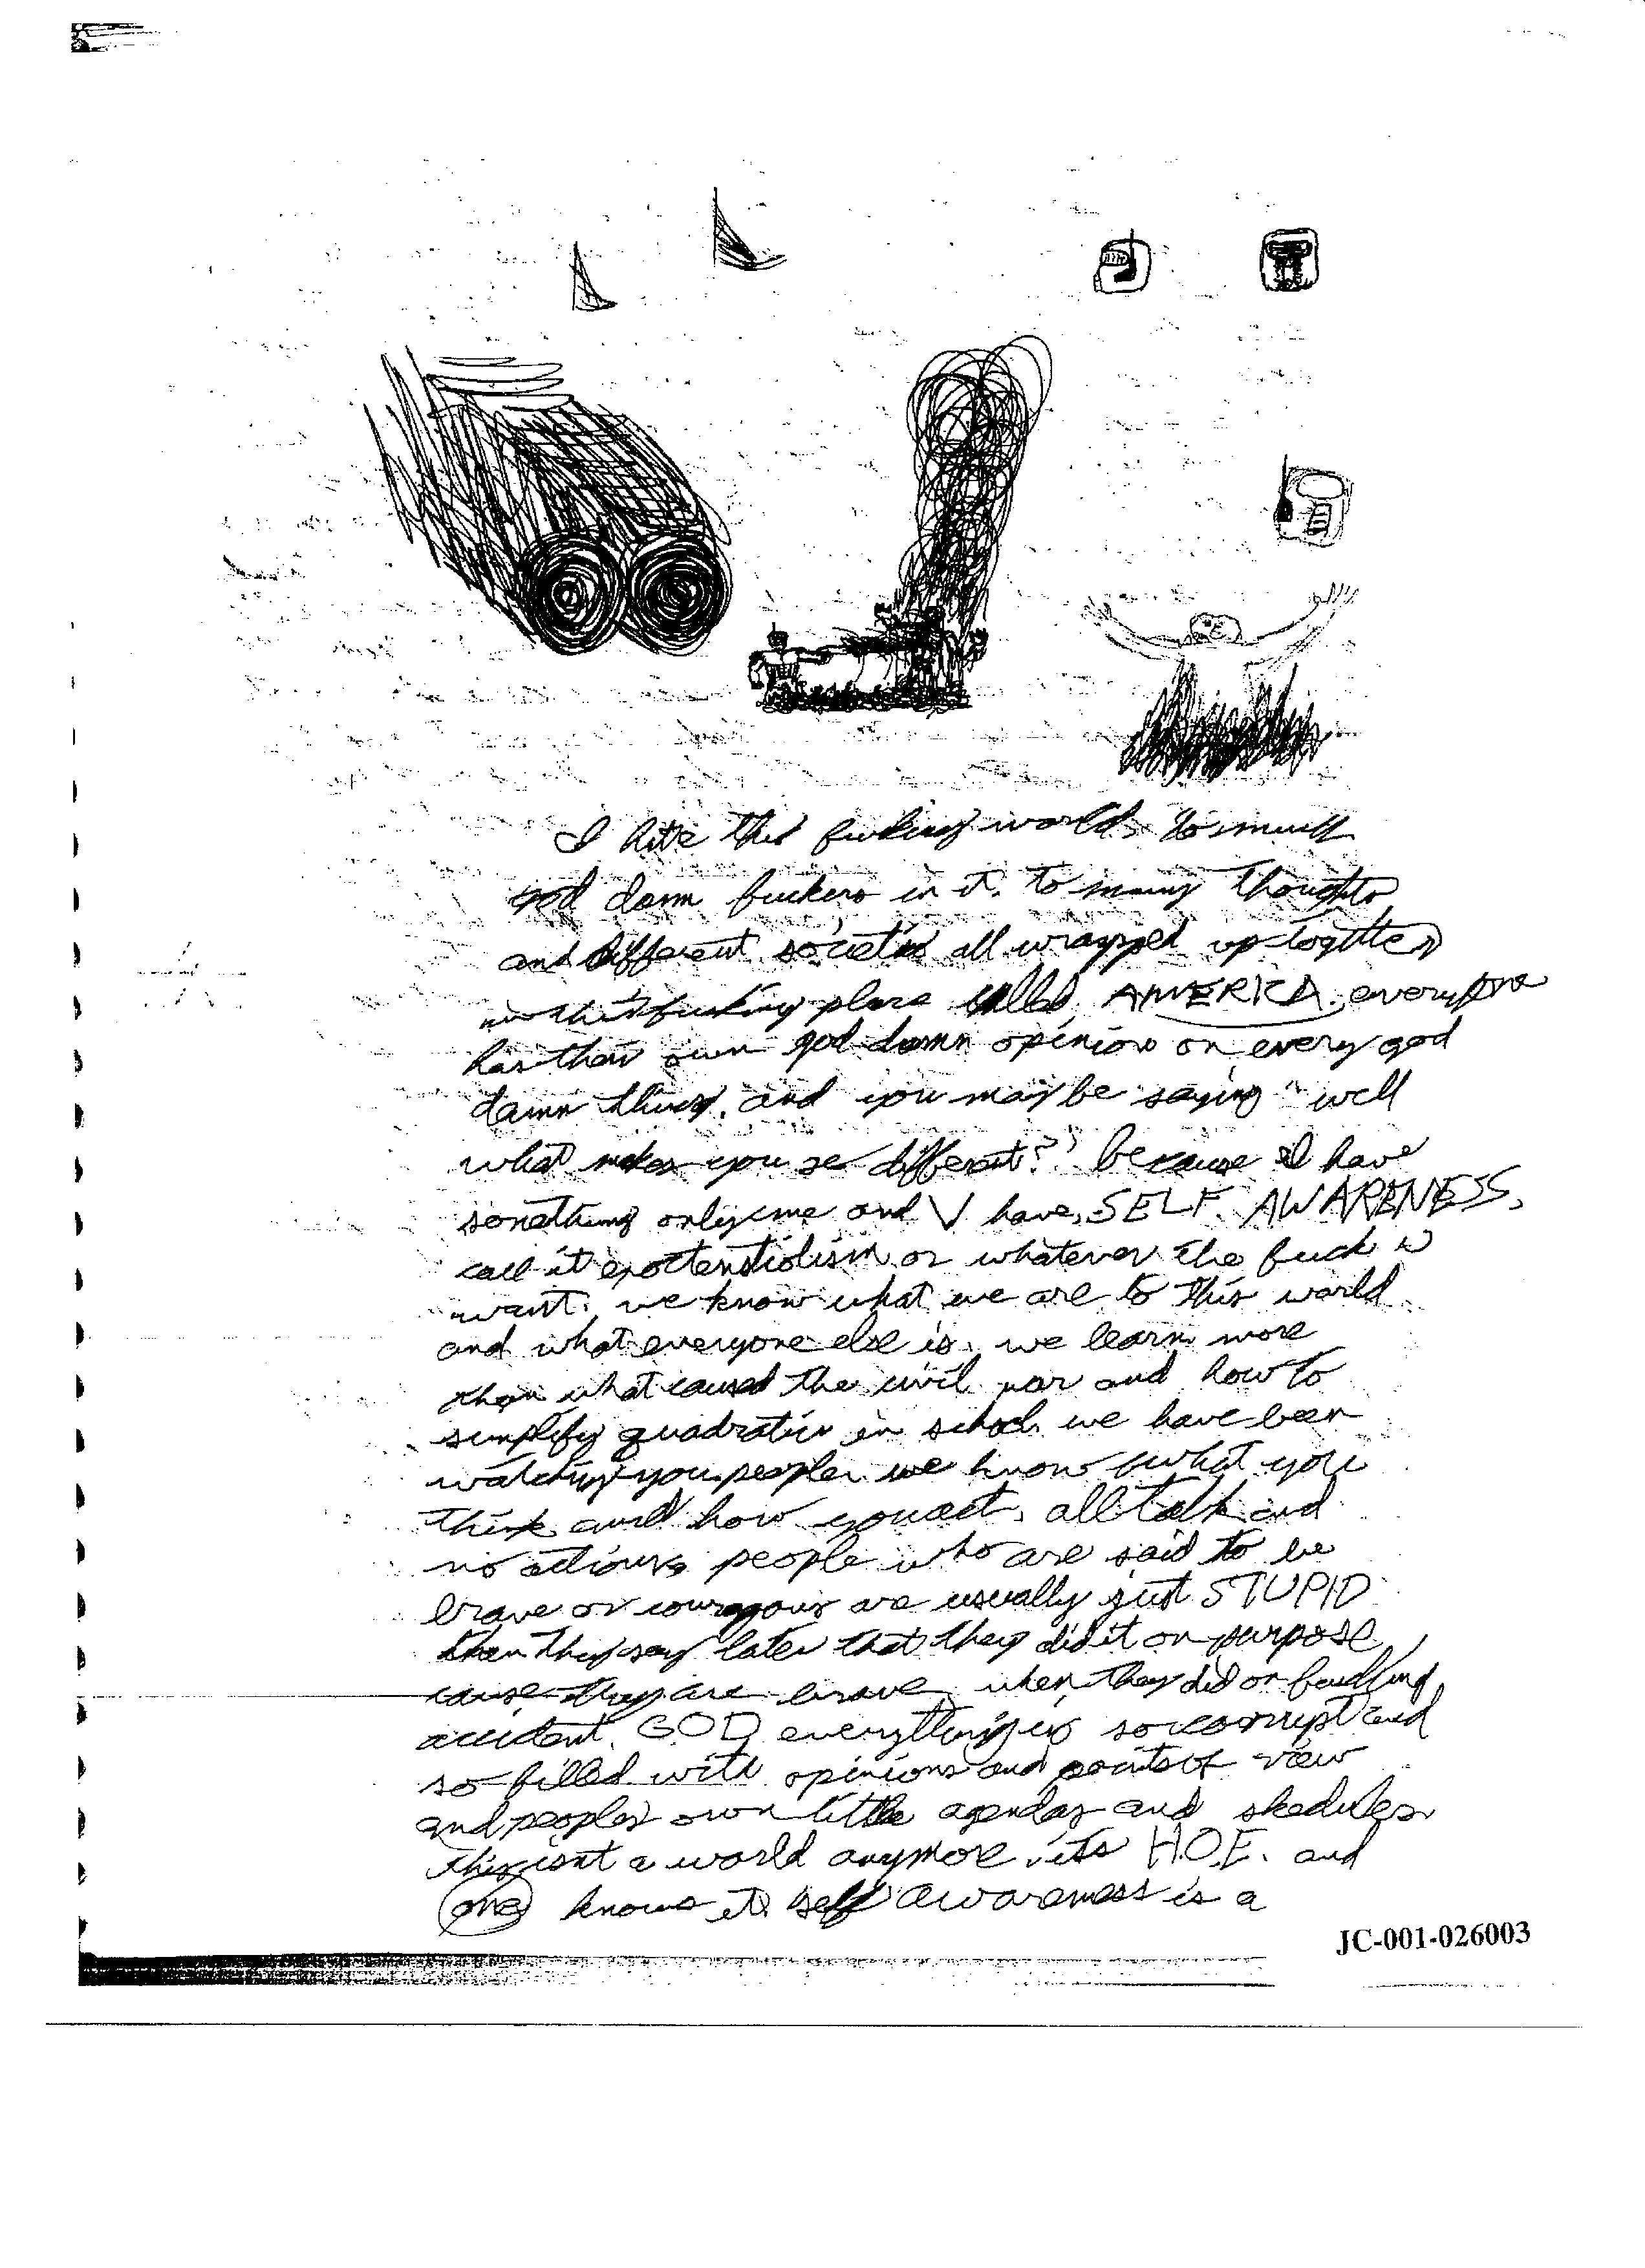 I hate this fucking world, to much
god damn fuckers in it. to many thoughts
and different societies all wrapped up together
in this fucking place called AMERICA. everyone
has their own god damn opinions on every god
damn thing. and you may be saying "well
what makes you so different?" because I have
something only me and V have, SELF AWARENESS.
call it existenstiolism or whatever the fuck u
want. we know what we are to this world
and what everyone else is. we learn more
than what caused the civil war and how to
simplify quadratics in school. we have been
watching you people. we know what you
think and how you act. all talk and
no actions. people who are said to be
brave or couragous are usually just STUPID
then they say later that they did it on purpose
cause they are brave, when they did on fucking
accident. GOD everything is so corrupt and
so filled with opinions and points of view
and peoples own little agendas and skedules
this isnt a world anymore. its H.O.E. and
one knows it. self awareness is a
JC-001-026003